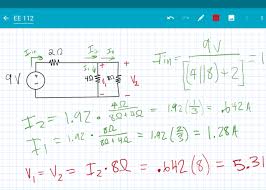 EE 112
Iin 2Ω I1 I2
9V 4Ω 8Ω V2
Iin = 9V / [(4||8)+2] = 1
I2 = 1.92 · 4Ω / 8Ω+4Ω = 1.92 (1/3) = .642A
I1 = 1.92 · 8Ω / 8Ω+4Ω = 1.92 (2/3) = 1.28A
V1 = V2 = I2·8Ω = .642(8) = 5.31